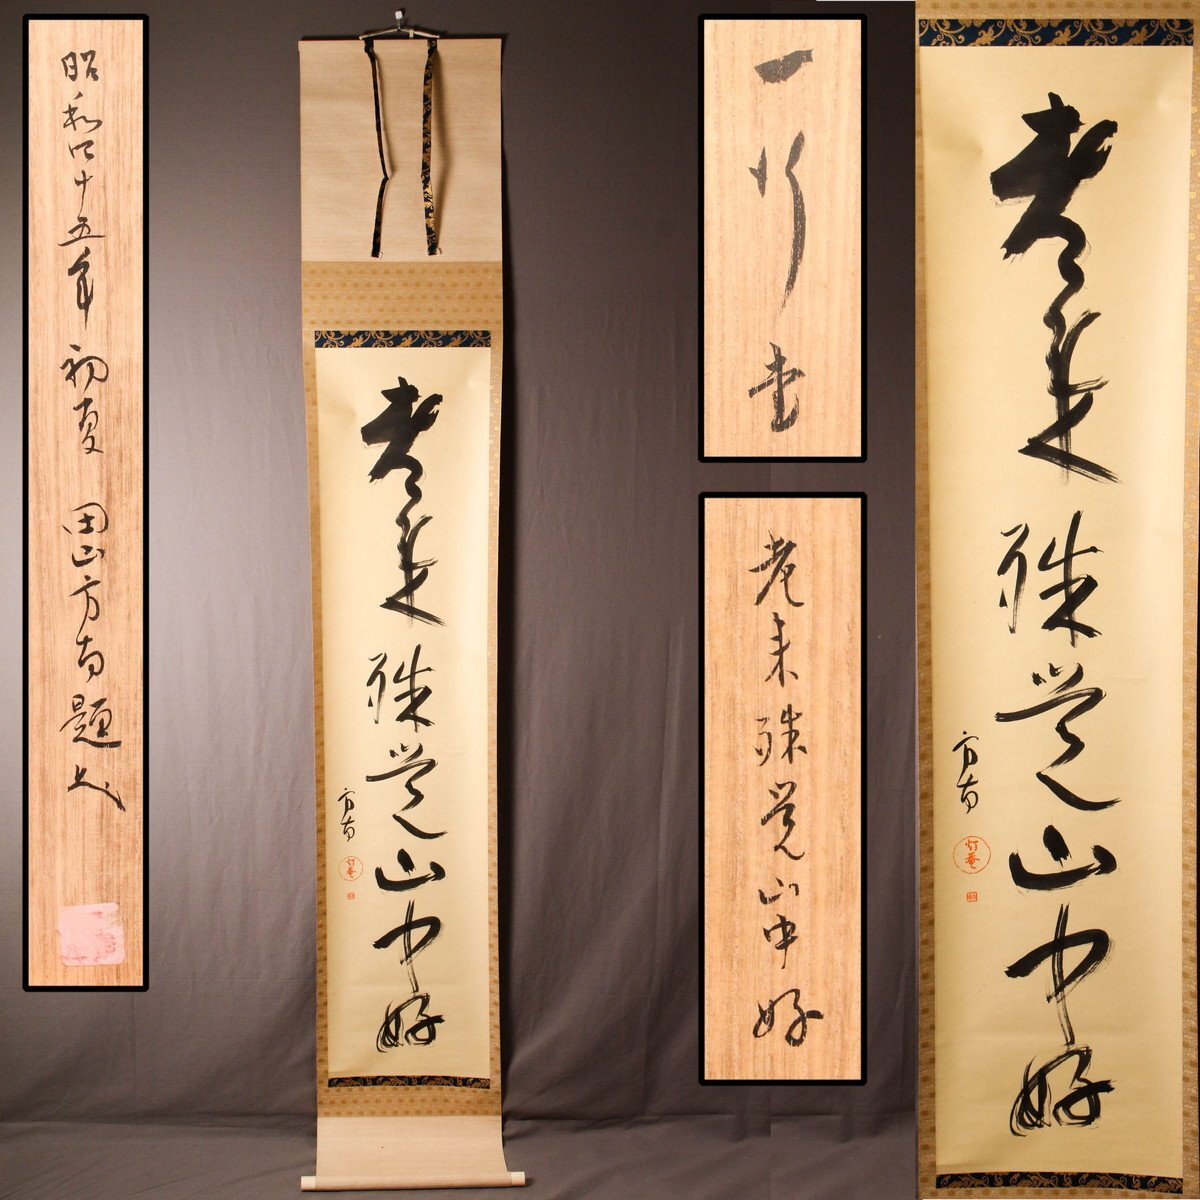 昭和四十五年 初夏 田山方南題并
老来殊覚山中好
方南
灯菴
一行書
老来殊覚山中好
老来殊覚山中好
方南
灯菴